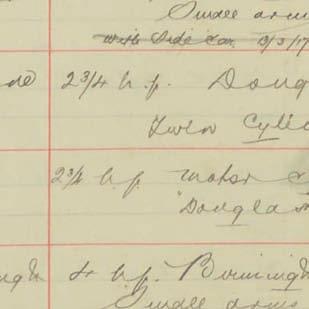 Small arm
with Side Car. 9/3/17
2¾ h.p. Doug
Twin Cylin
2¾ h.p. motor c
"Douglas
4 h.p. Birmingh
Small arms